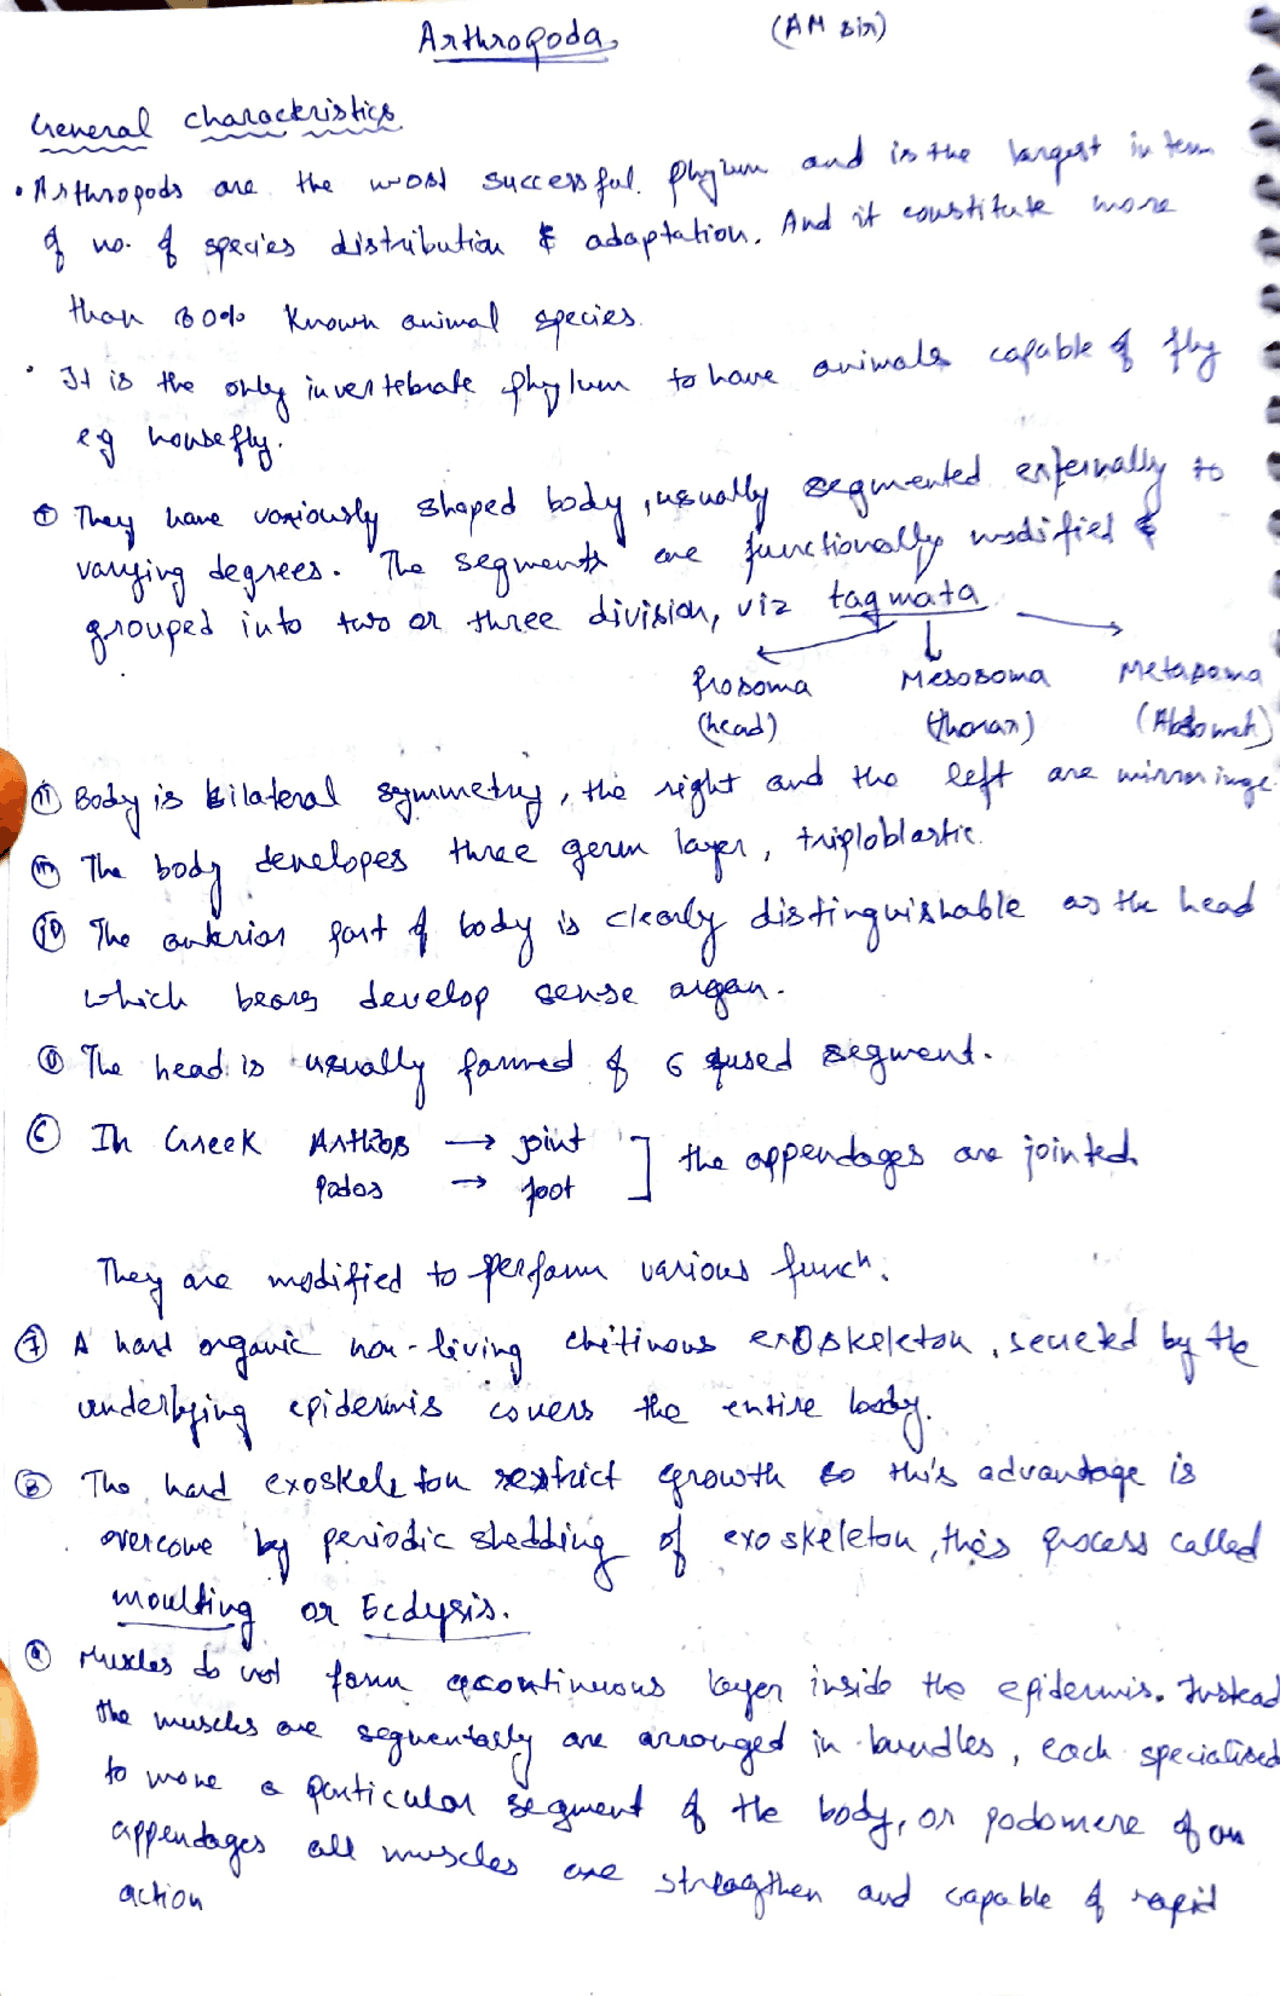 Arthropoda (AM sir)
General characteristics
• Arthropods are the most successful phylum and is the largest in term
of no. of species distribution & adaptation. And it constitute more
than 80% Known animal species.
• It is the only invertebrate phylum to have animals capable of fly
eg housefly.
① They have variously shaped body, usually segmented externally to
varying degrees. The segments are functionally modified &
grouped into two or three division, viz tagmata
Prosoma Mesosoma Metasoma
(head) (thorax)
⑪ Body is bilateral symmetry, the right and the left are mirror
⑪⑪ The body developes three germ layer, triploblastic.
ⓘⓥ The anterior part of body is clearly distinguishable as the head
which bears develop sense organ.
ⓥ The head is usually formed of 6 fused segment.
⑥ In Greek Arthros → joint ] the appendages are jointed.
Podos → foot
They are modified to perform various funcⁿ.
⑦ A hard organic non-living chitinous exoskeleton, secreted by the
underlying epidermis covers the entire body.
⑧ The hard exoskeleton restrict growth so this advantage is
overcome by periodic shedding of exoskeleton, this process called
moulting or Ecdysis.
⑨ Muscles do not form a continuous layer inside the epidermis. Instead
the muscles are segmentally are arranged in bundles, each specialised
to move a particular segment of the body, or podomere of an
appendages all muscles are and capable of rapid
action